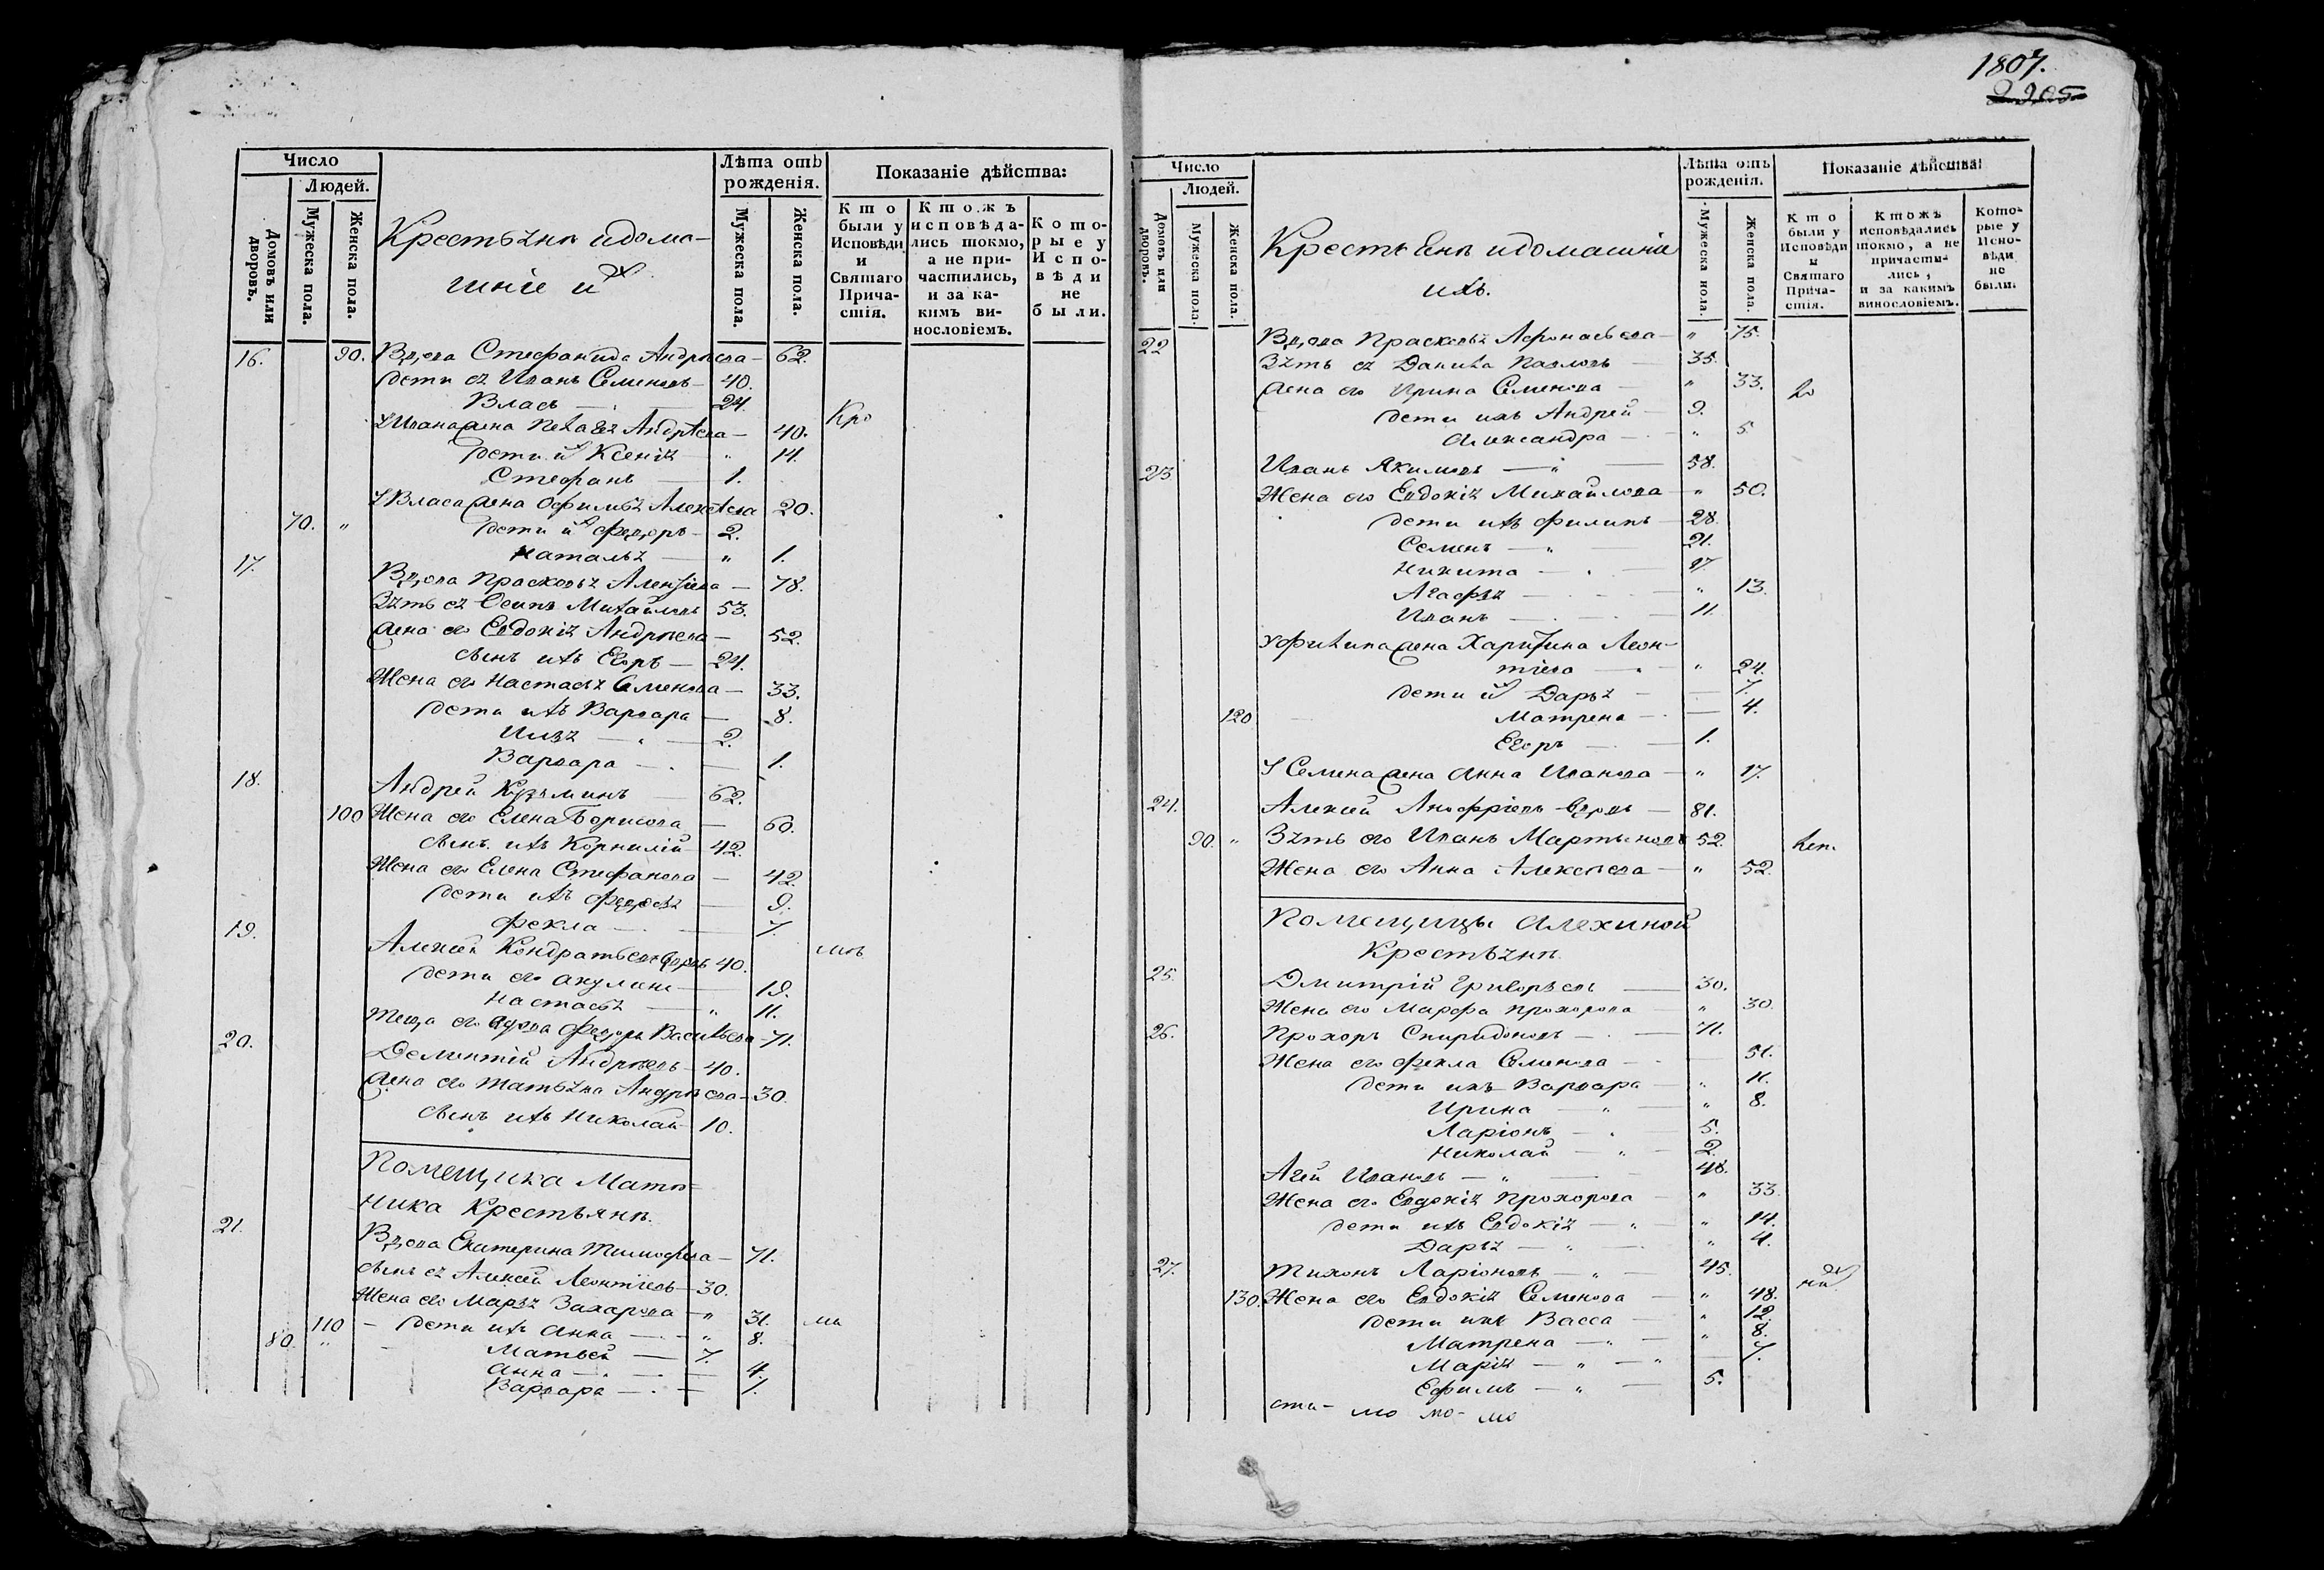 1807.
2205
Число
Людей.
Домовъ или дворовъ.
Мужеска пола.
Женска пола.
Крестьяня и дома-
шніе их
Лѣта отъ рожденія.
Мужеска пола.
Женска пола.
Показаніе дѣйства:
Кто были у Исповѣди и Святаго Причастія.
Кто жъ исповѣдались токмо, а не причастились, и за какимъ винословіемъ.
Которые у Исповѣди не были.
16. 90. Вдова Стефанида Андреева — 62.
Дети ея Иванъ Семеновъ — 40.
Власъ — 24.
У Ивана жена Пелагея Андреева — 40. Кро
Дети их Ксенія — " 14.
Стефанъ — 1.
У Власа жена Офимья Алексеева 20.
70. " Дети их Федоръ — 2.
Наталья — " 1.
17. Вдова Прасковья Алексіева — 78.
Зять ея Осипъ Михайловъ 53.
Жена его Евдокія Андреева — 52.
Сынъ ихъ Егоръ — 24.
Жена его Настасья Семенова — 33.
Дети ихъ Варвара — 8.
— " — 2.
Варвара — 1.
18. Андрей Кузьминъ — 62.
100 Жена его Елена Борисова — 60.
Сынъ ихъ Корнилій 42.
Жена его Елена Стефанова — 42.
Дети ихъ Федосья — 9.
Фекла — 7.
19. Алексей Кондратьевъ вдовъ 40. шъ
Дети его Акулина — 19.
Настасья — " 11.
Теща его вдова Васильева — 71.
20. Дементій Андреевъ — 40.
Жена его Татьяна Андреева — 30.
Сынъ ихъ Николай 10.
Помещика Мато-
ника Крестьянъ.
21. Вдова Екатерина Тимофеева — 71.
Сынъ ея Алексей Леонтіевъ — 30.
Жена его Марья Захарова — " 31. ма
80. 110 Дети ихъ Анна — " 8.
Матвей — 7.
Анна — 4.
Варвара — 1.
Число
Людей.
Домовъ или дворовъ.
Мужеска пола.
Женска пола.
Крестьянъ и домашніе
ихъ.
Лѣта отъ рожденія.
Мужеска пола.
Женска пола.
Показаніе дѣйства:
Кто были у Исповѣди и Святаго Причастія.
Ктожъ исповѣдались токмо, а не причастились, и за какимъ винословіемъ.
Которые у Исповѣди не были.
22 Вдова Прасковья Афонасьева — " 75.
Зять ея Данила Павловъ — 35.
Жена его Ирина Семенова — " 33.
Дети ихъ Андрей — 9.
Александра — " 5.
23 Иванъ Якимовъ — " — 58.
Жена его Евдокія Михайлова — " 50.
Дети ихъ Филипъ — 28.
Семенъ — " — 21.
Никита — " — 17.
Агафья — " 13.
Иванъ — 11.
У Филипа жена Харитина Леон-
тіева — " 24.
Дети их Дарья — 7.
120 Матрена — 4.
Егоръ — 1.
У Семена жена Анна Иванова — " 17.
24. Алексей Анофріевъ вдовъ — 81.
90. " Зять его Иванъ Мартыновъ 52.
Жена его Анна Алексеева — " 52.
Помещицы Алехиной
Крестьянъ.
25. Дмитрій Григорьевъ — 30.
Жена его Марфа Прохорова — " 30.
26. Прохоръ Спиридоновъ — 71.
Жена его Фекла Семенова — 51.
Дети ихъ Варвара — " 11.
Ирина — " — " 8.
Ларіонъ — 5.
Николай — " — 2.
Агей Ивановъ — " — 48.
Жена его Евдокія Прохорова — " 33.
Дети ихъ Евдокія — " — " 14.
Дарья — " — " 4.
27. Тихонъ Ларіоновъ — " — 45.
130. Жена его Евдокія Семенова — " 48.
Дети ихъ Васса — " 12.
Матрена — " — " 8.
Марія — " — " — 7.
Ефимъ — " — 5.